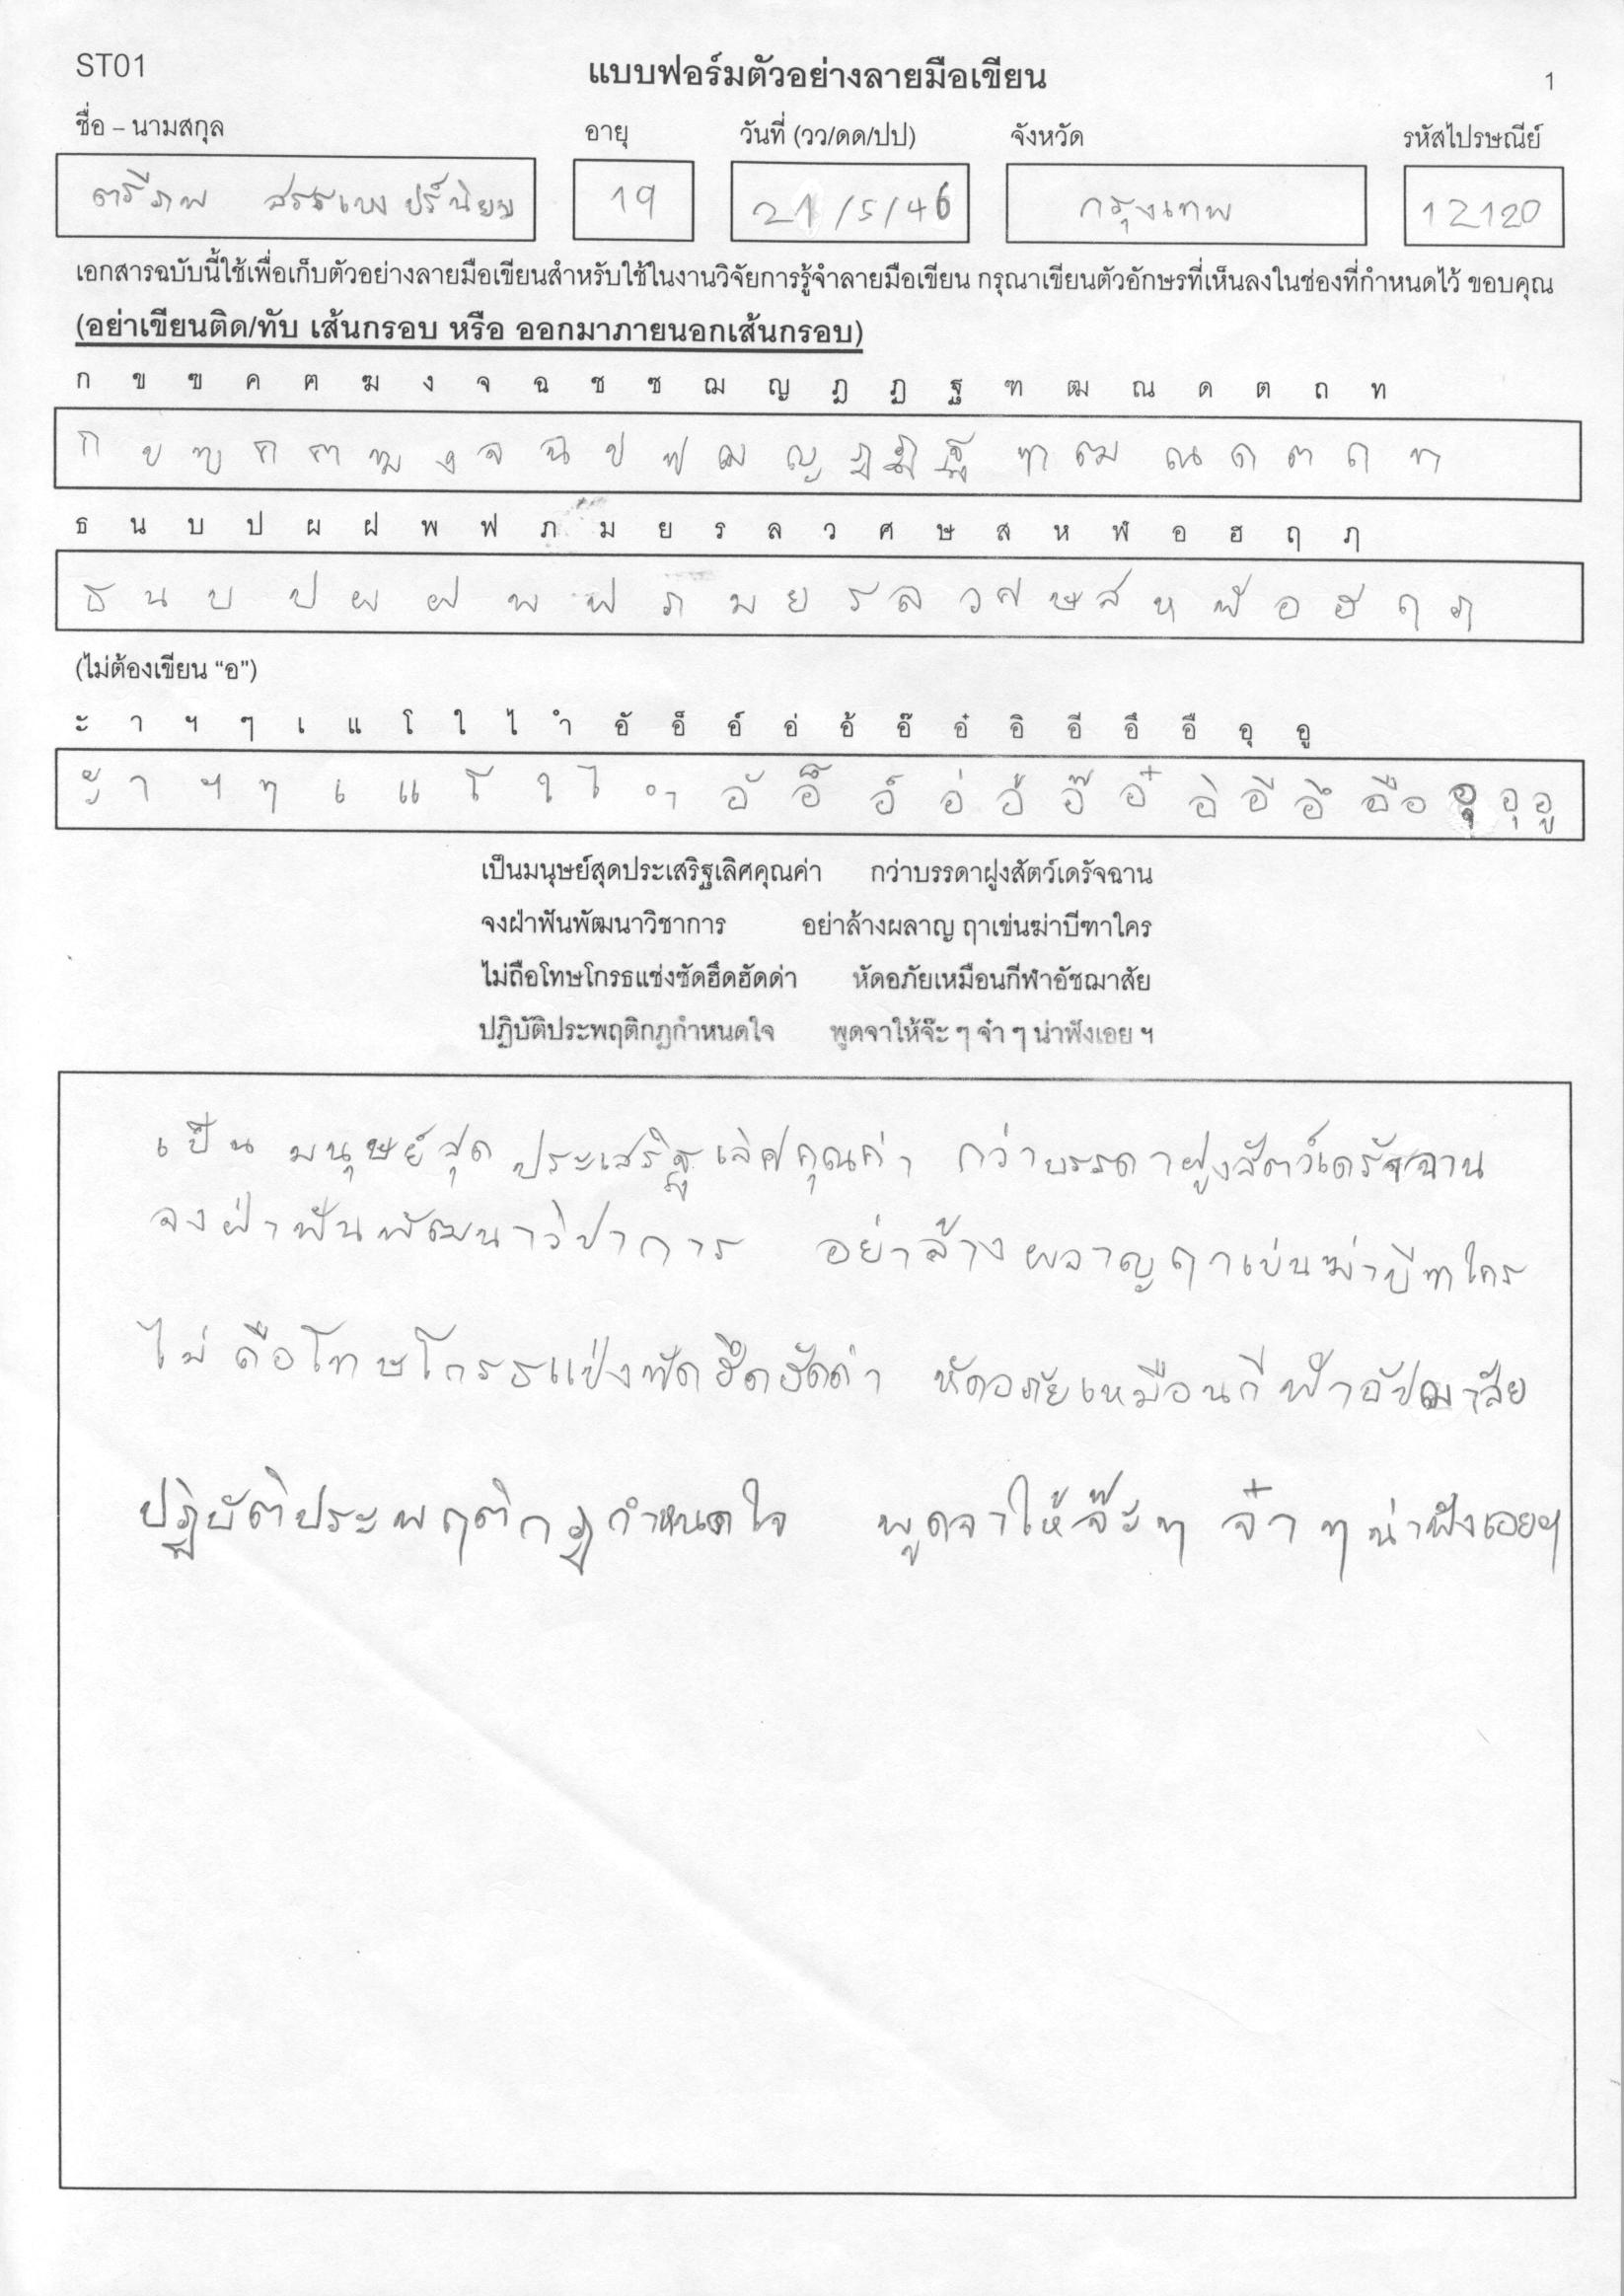 ST01
แบบฟอร์มตัวอย่างลายมือเขียน
1
ชื่อ – นามสกุล อายุ วันที่ (วว/ดด/ปป) จังหวัด รหัสไปรษณีย์
ตรีภพ 19 21/5/46 กรุงเทพ 12120
เอกสารฉบับนี้ใช้เพื่อเก็บตัวอย่างลายมือเขียนสำหรับใช้ในงานวิจัยการรู้จำลายมือเขียน กรุณาเขียนตัวอักษรที่เห็นลงในช่องที่กำหนดไว้ ขอบคุณ
(อย่าเขียนติด/ทับ เส้นกรอบ หรือ ออกมาภายนอกเส้นกรอบ)
ก ข ฃ ค ฅ ฆ ง จ ฉ ช ซ ฌ ญ ฎ ฏ ฐ ฑ ฒ ณ ด ต ถ ท
ก ข ฃ ค ฅ ฆ ง จ ฉ ช ซ ฌ ญ ฎ ฏ ฐ ฑ ฒ ณ ด ต ถ ท
ธ น บ ป ผ ฝ พ ฟ ภ ม ย ร ล ว ศ ษ ส ห ฬ อ ฮ ฤ ฦ
ธ น บ ป ผ ฝ พ ฟ ภ ม ย ร ล ว ศ ษ ส ห ฬ อ ฮ ฤ ฦ
(ไม่ต้องเขียน “อ”)
ะ า ฯ ๆ เ แ โ ใ ไ ำ อั อ็ อ์ อ่ อ้ อ๊ อ๋ อิ อี อึ อื อุ อู
ะ า ฯ ๆ เ แ โ ใ ไ ำ อั อ็ อ์ อ่ อ้ อ๊ อ๋ อิ อี อึ อือ อุ อุ อู
เป็นมนุษย์สุดประเสริฐเลิศคุณค่า กว่าบรรดาฝูงสัตว์เดรัจฉาน
จงฝ่าฟันพัฒนาวิชาการ อย่าล้างผลาญ ฤาเข่นฆ่าบีฑาใคร
ไม่ถือโทษโกรธแช่งซัดฮึดฮัดด่า หัดอภัยเหมือนกีฬาอัชฌาสัย
ปฏิบัติประพฤติกฎกำหนดใจ พูดจาให้จ๊ะ ๆ จ๋า ๆ น่าฟังเอย ฯ
เป็นมนุษย์สุดประเสริฐเลิศคุณค่า กว่าบรรดาฝูงสัตว์เดรัจฉาน
จงฝ่าฟันพัฒนาวิชาการ อย่าล้างผลาญฤาเข่นฆ่าบีฑาใคร
ไม่ถือโทษโกรธแช่งซัดฮึดฮัดด่า หัดอภัยเหมือนกีฬาอัชฌาสัย
ปฏิบัติประพฤติกฏกำหนดใจ พูดจาให้จ๊ะๆ จ๋าๆน่าฟังเอยฯ